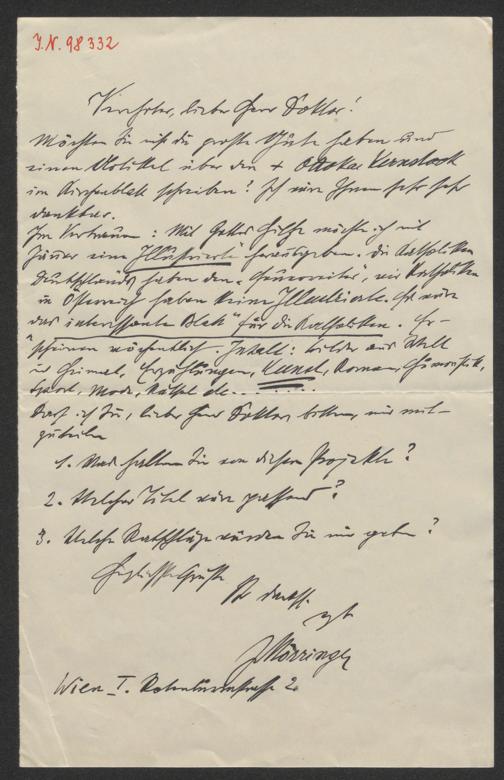 J.N. 98332
Verehrter, lieber Herr Doktor!
Möchten Sie nicht die große Güte haben und
einen Artikel über den + Ottokar Kernstock
im Kirchenblatt schreiben? Ich wäre Ihnen sehr sehr
dankbar.
Im Vertrauen: Mit Gottes Hilfe möchte ich mit
Jänner eine Illustrierte herausgeben. Die Katholiken
Deutschlands haben den „Feuerreiter", wir Katholiken
in Österreich haben keine Illustrierte. Es wäre
„das interessante Blatt" für die Katholiken. Er-
scheinen wöchentlich. Inhalt: Bilder aus Welt
und Heimat, Erzählungen, Kunst, Roman, Humoristik,
Sport, Mode, Rätsel etc.........
Darf ich Sie, lieber Herr Doktor, bitten, mir mit-
zuteilen
1. Was halten Sie von diesem Projekte?
2. Welcher Titel wäre passend?
3. Welche Ratschläge würden Sie mir geben?
Herzliche Grüße
Ihr dankb.
erg.
J Mörzinger
Wien I. Rotenturmstraße 2.